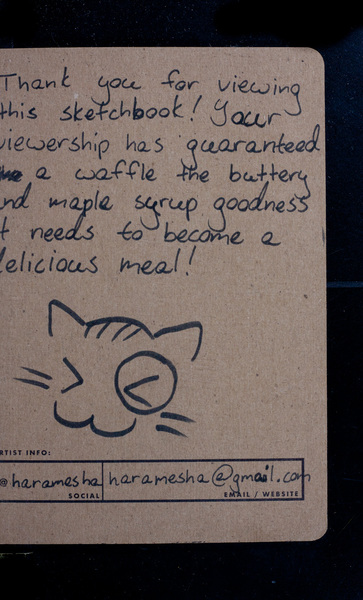 Thank you for viewing
this sketchbook! Your
viewership has guaranteed
a waffle the buttery
nd maple syrup goodness
t needs to become a
elicious meal!
RTIST INFO:
@haramesha haramesha@gmail.com
SOCIAL EMAIL / WEBSITE